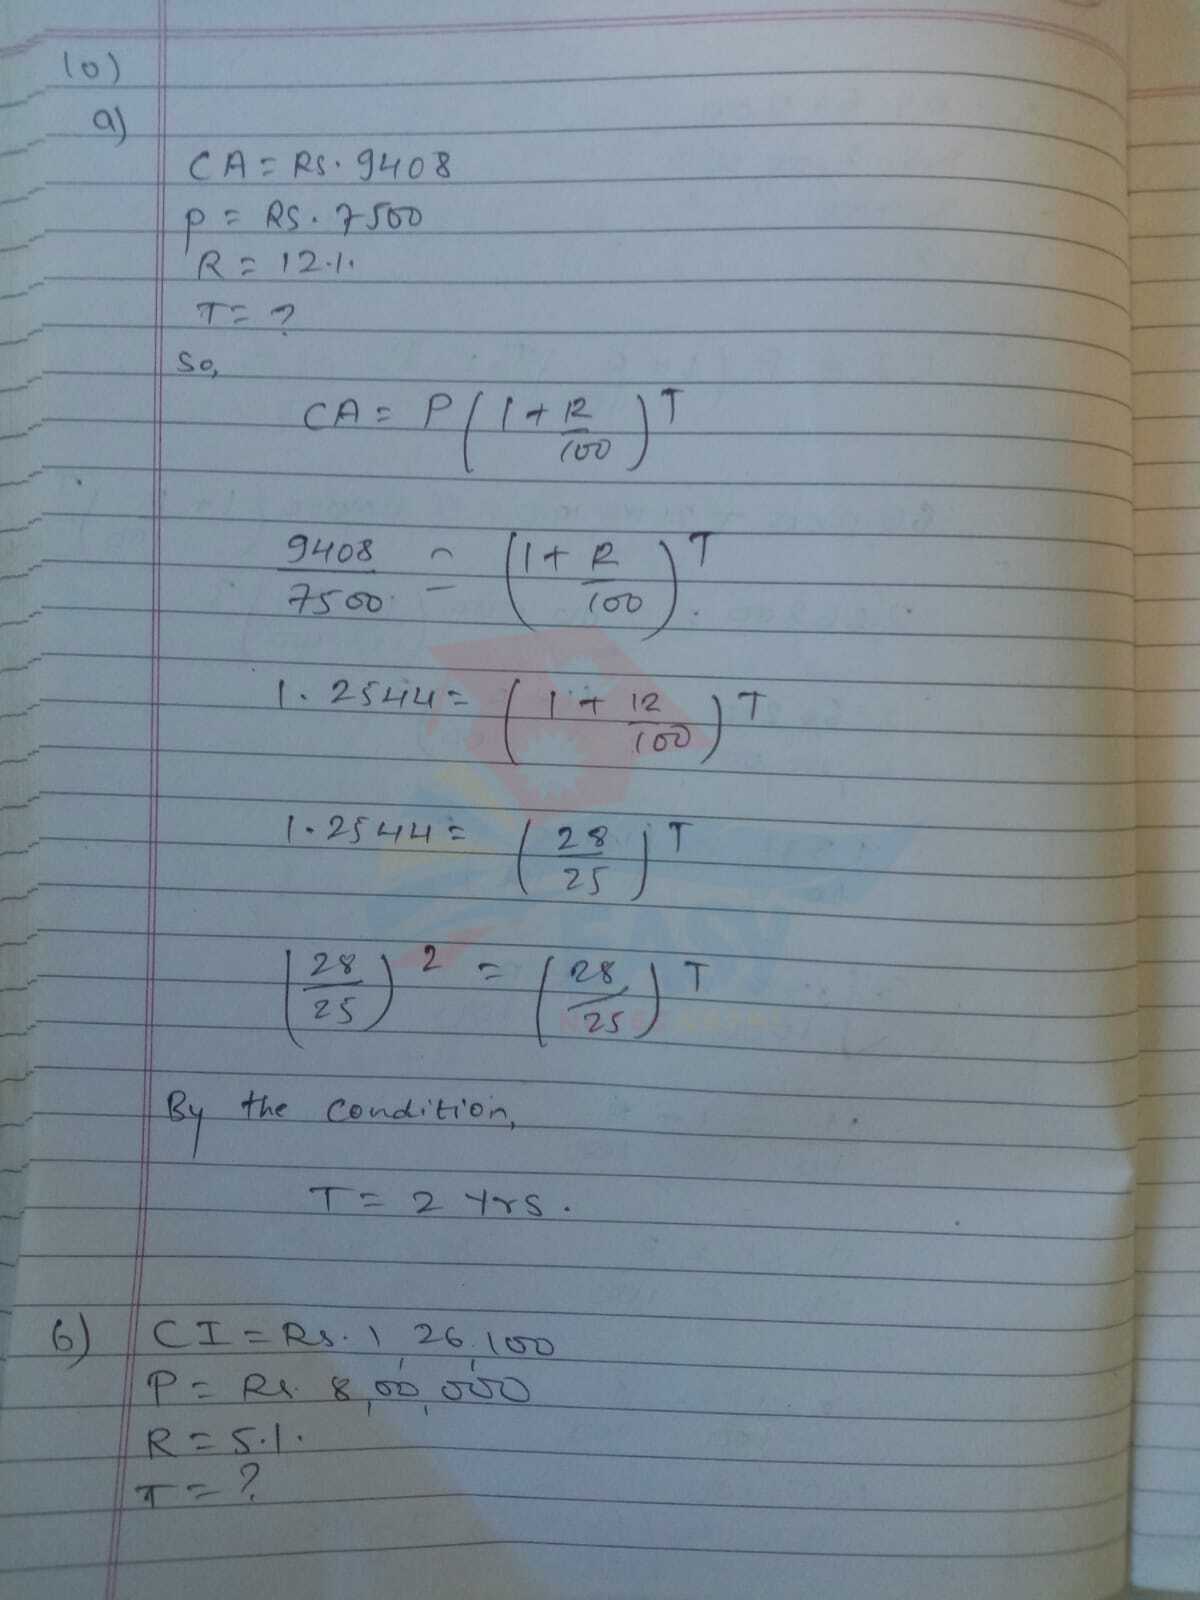 10)
a)
CA = Rs. 9408
P = RS. 7500
R = 12%
T = ?
So,
CA = P (1 + R/100)^T
9408/7500 = (1 + R/100)^T
1.2544 = (1 + 12/100)^T
1.2544 = (28/25)^T
(28/25)^2 = (28/25)^T
EASY
By the condition,
T = 2 Yrs.
6) CI = Rs. 1,26,100
P = Rs. 8,00,000
R = 5%.
T = ?